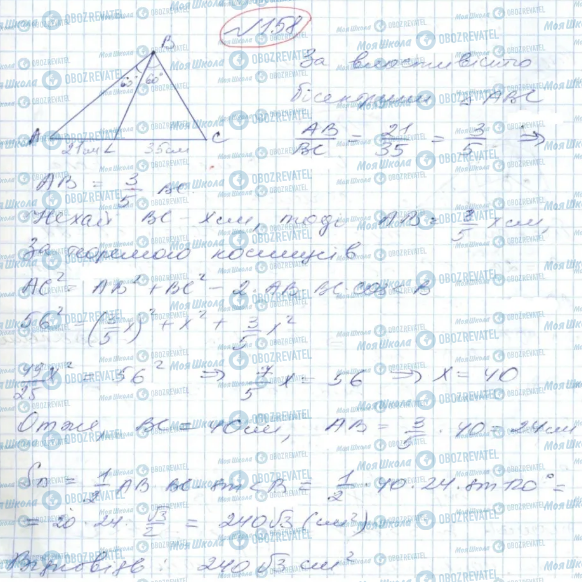 №158
B
60° 60°
A 21см L 35см C
За властивістю
бісектриси △ABC
AB/BC = 21/35 = 3/5 ⇒
AB = 3/5 BC
Нехай BC - x см, тоді AB = 3/5 x см,
За теоремою косинусів
AC² = AB² + BC² - 2·AB·BC·cos∠B
56² = (3/5 x)² + x² + 3/5 x²
49/25 x² = 56² ⇒ 7/5 x = 56 ⇒ x = 40
Отже, BC = 40 см, AB = 3/5 · 40 = 24 см
S△ = 1/2 AB·BC·sin∠B = 1/2 · 40·24·sin120° =
= 20·24·√3/2 = 240√3 (см²)
Відповідь: 240√3 см²
Моя Школа
OBOZREVATEL